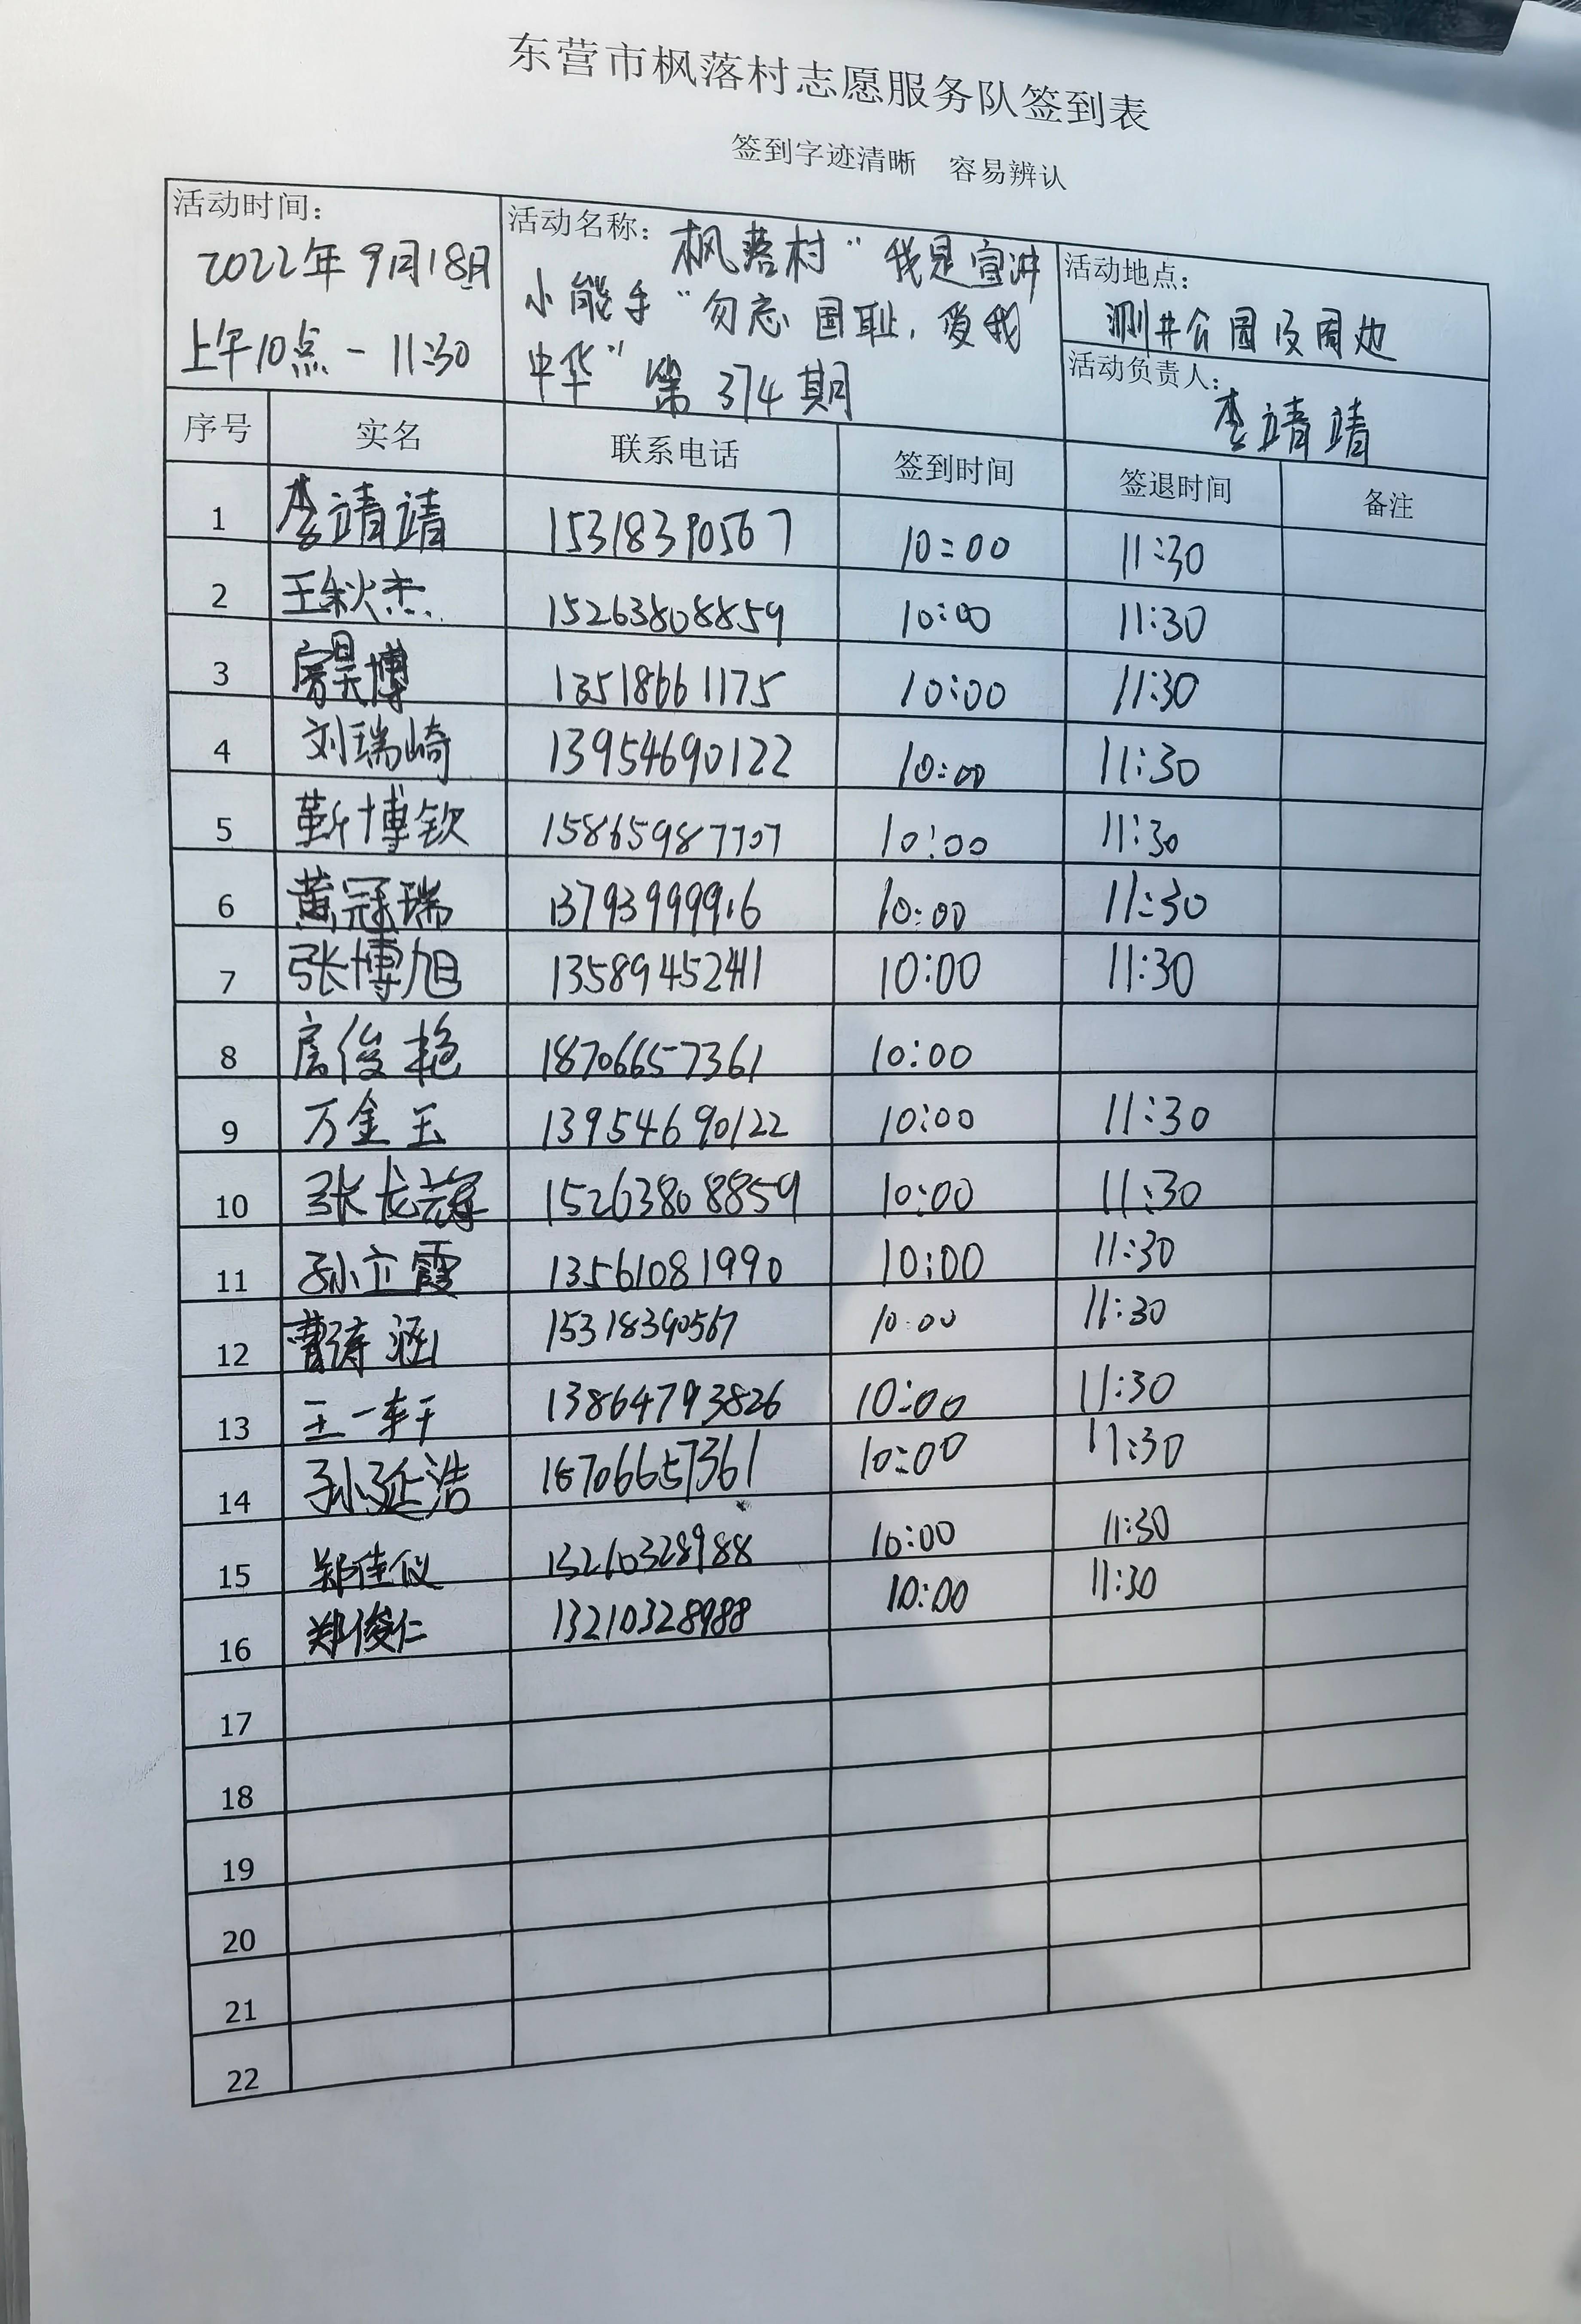 东营市枫落村志愿服务队签到表
签到字迹清晰 容易辨认
活动时间：
2022年9月18日
上午10点-11:30
活动名称：枫落村“我是宣讲
小能手“勿忘国耻，爱我
中华”第374期
活动地点：
测井公园及周边
活动负责人：
李靖靖
序号 实名 联系电话 签到时间 签退时间 备注
1 李靖靖 15318390567 10:00 11:30
2 王秋杰 15263808859 10:00 11:30
3 房昊博 13518661175 10:00 11:30
4 刘瑞崎 13954690122 10:00 11:30
5 靳博钦 15865987707 10:00 11:30
6 黄冠瑞 13793999916 10:00 11:30
7 张博旭 13589452411 10:00 11:30
8 房俊艳 18706657361 10:00
9 万金玉 13954690122 10:00 11:30
10 张龙 15263808859 10:00 11:30
11 孙立霞 13561081990 10:00 11:30
12 曹涵 15318390567 10:00 11:30
13 王一轩 13864793826 10:00 11:30
14 孙延浩 18706657361 10:00 11:30
15 郑佳仪 10:00 11:30
16 郑俊仁 13210328988 10:00 11:30
17
18
19
20
21
22